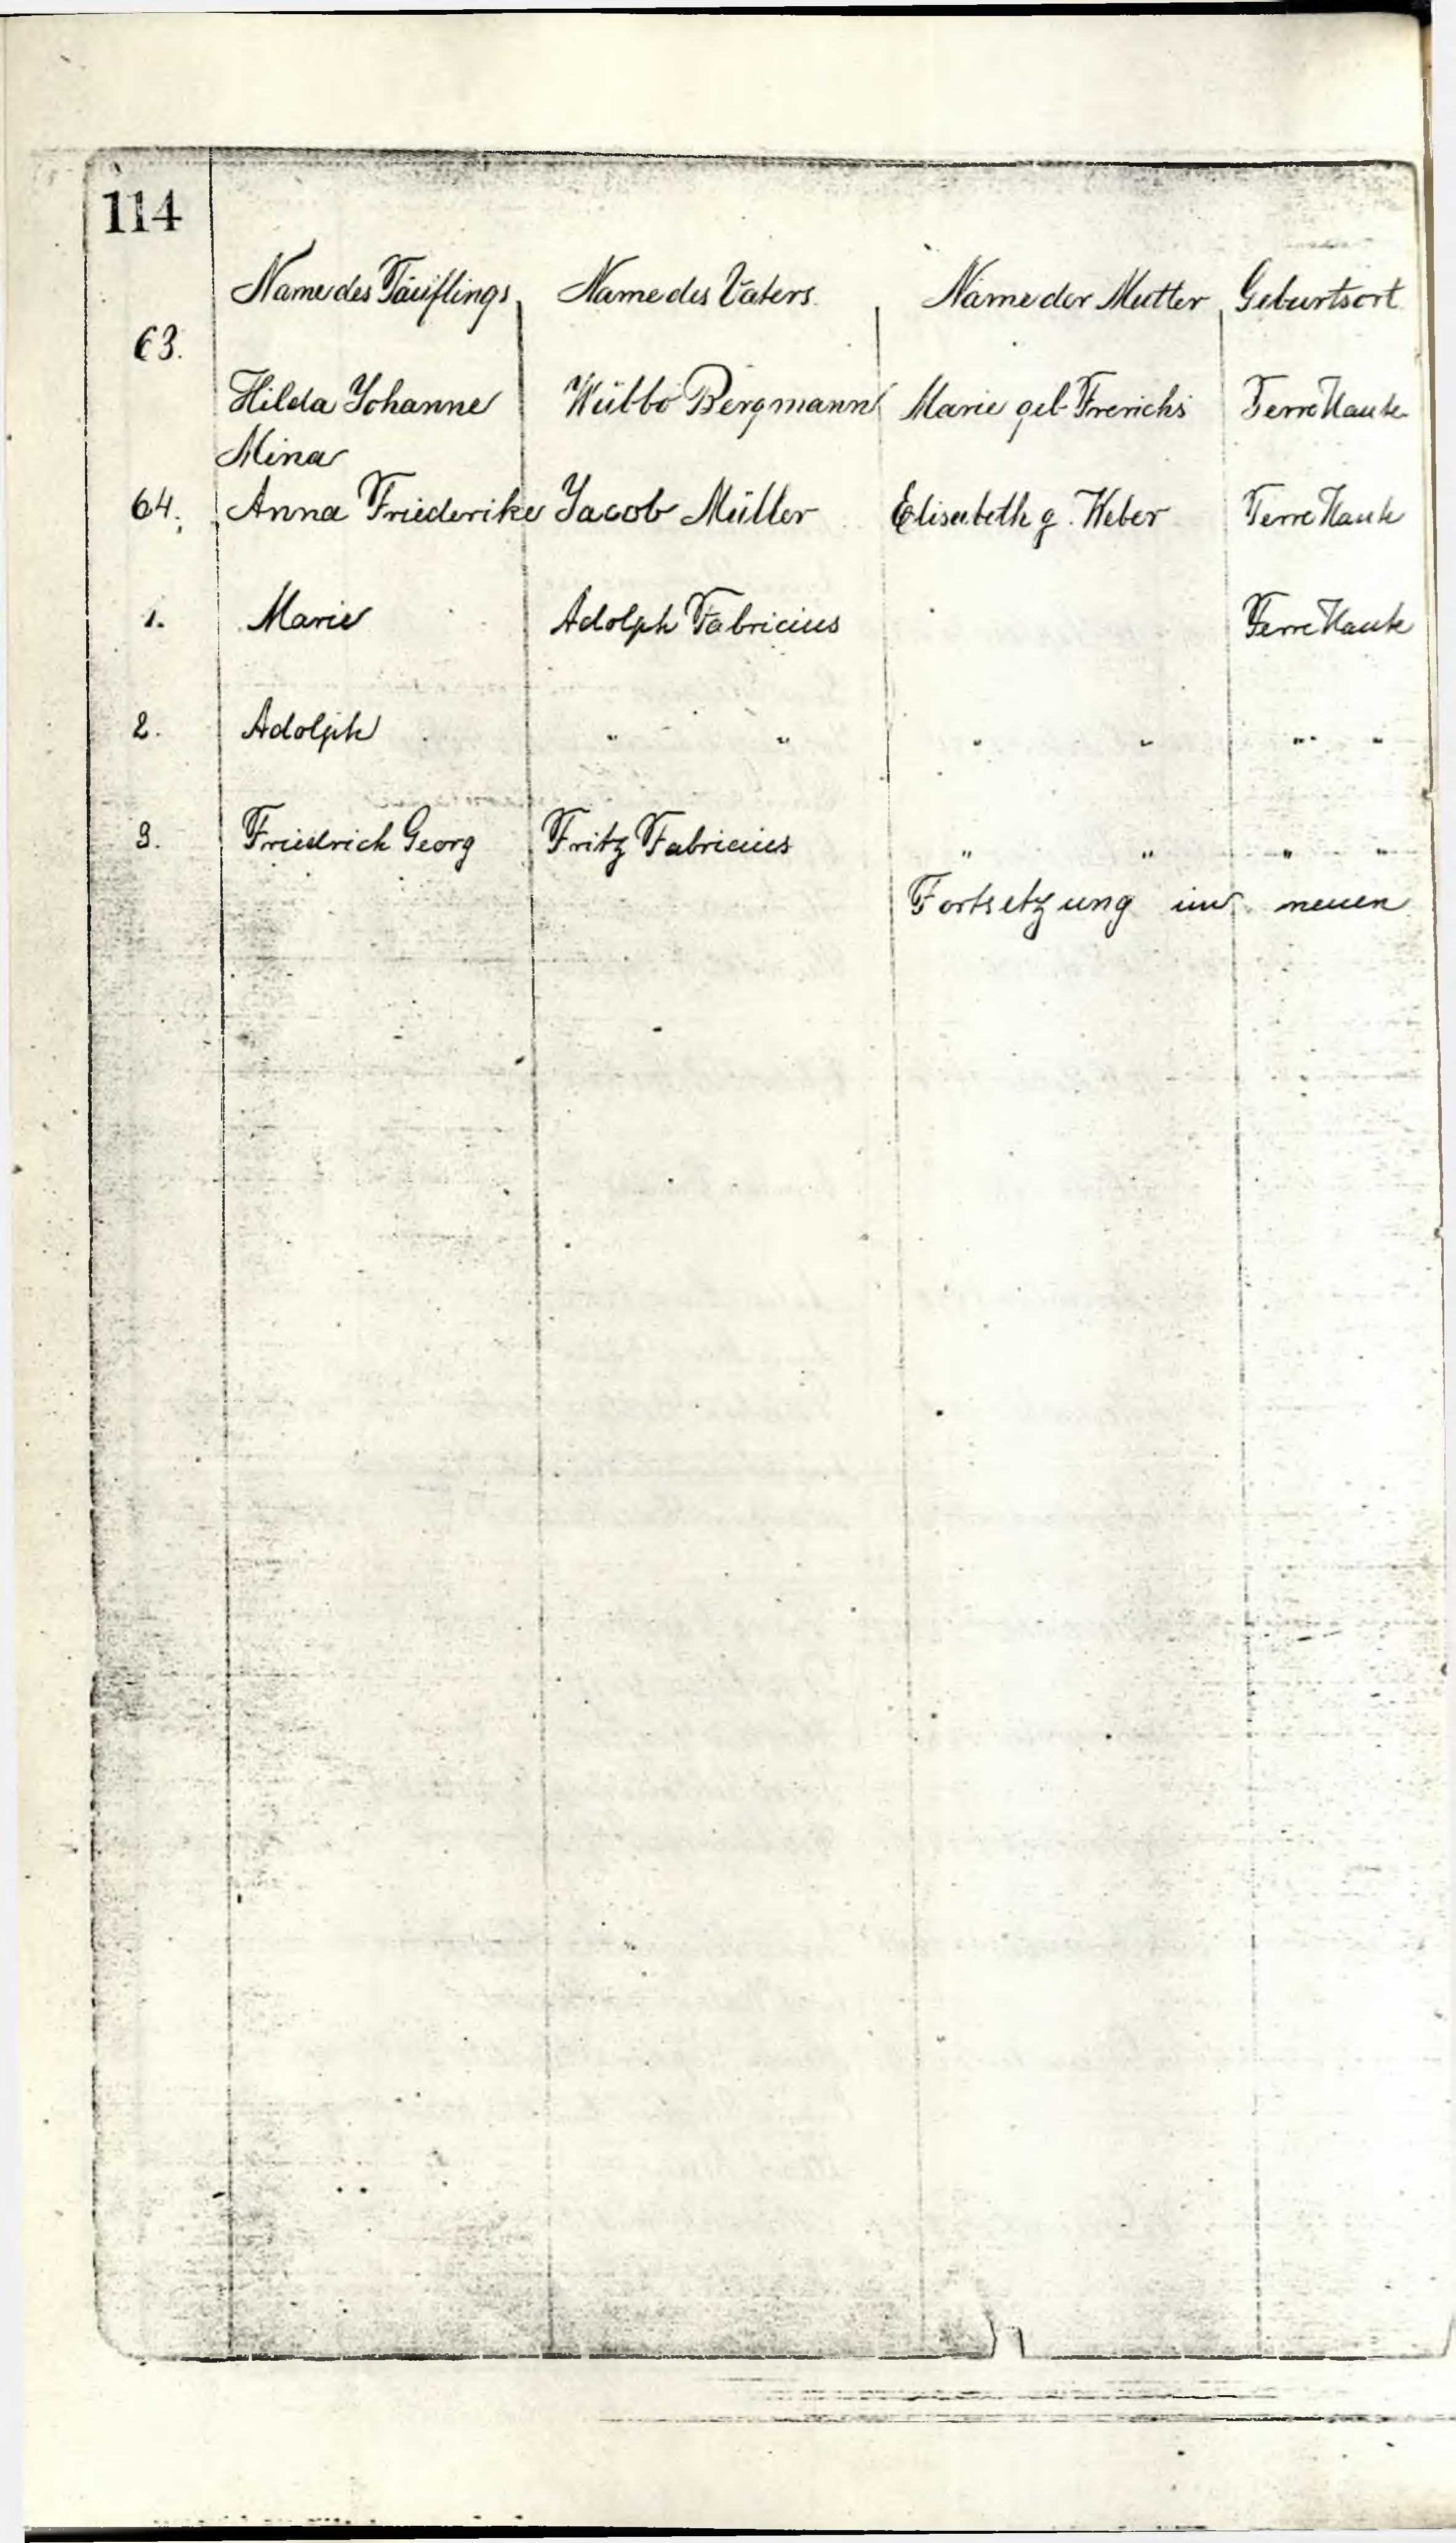 114
Name des Täuflings Name des Vaters. Name der Mutter Geburtsort
63.
Hilda Johanne Wübbo Bergmann Marie geb. Frerichs Terre Haute
Mina
64. Anna Friederike Jacob Müller Elisabeth g. Weber Terre Haute
1. Marie Adolph Fabricius Terre Haute
2. Adolph " " " " " "
3. Friedrich Georg Fritz Fabricius " " " "
Fortsetzung im neuen